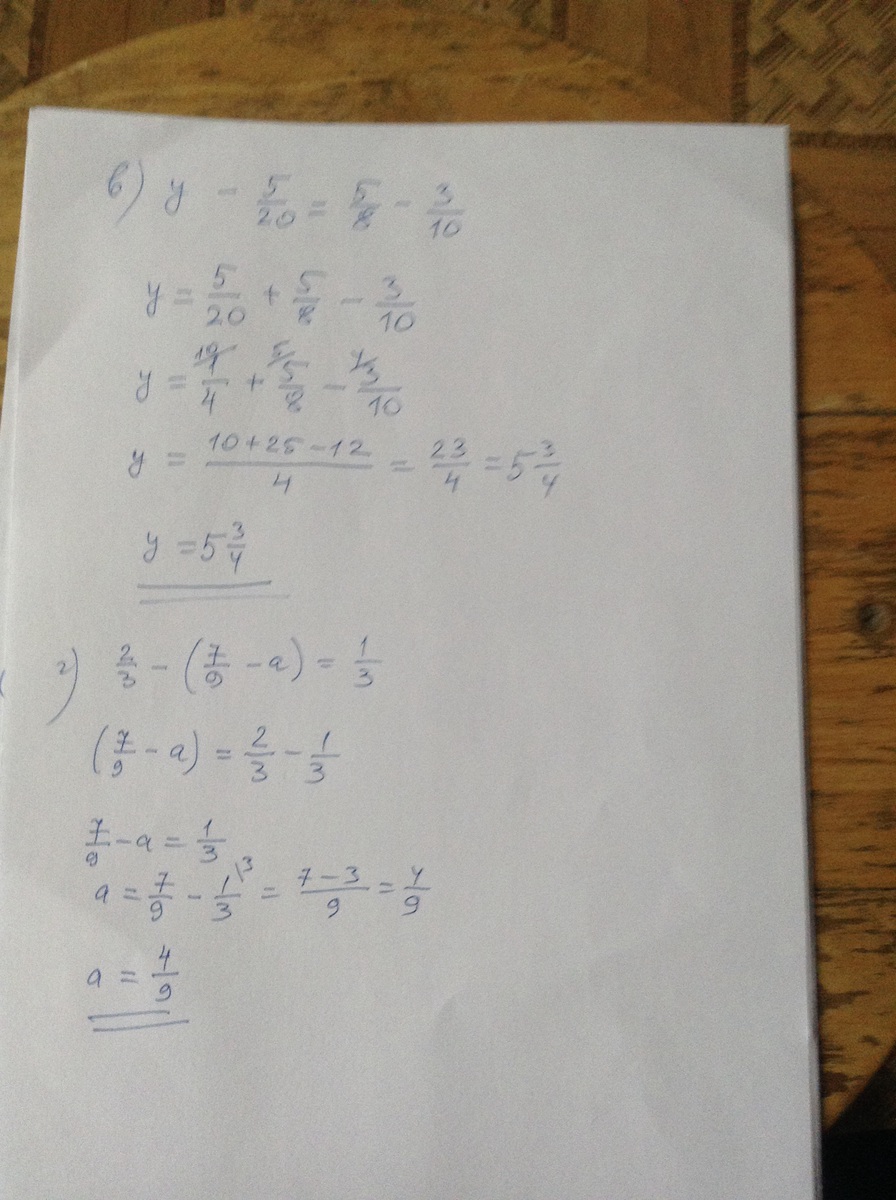 в) y - 5/20 = 5/8 - 3/10
y = 5/20 + 5/8 - 3/10
y = 10/ 1/4 + 5/ 5/8 - 4/ 3/10
y = (10+25-12)/4 = 23/4 = 5 3/4
y = 5 3/4
г) 2/3 - (7/9 - a) = 1/3
(7/9 - a) = 2/3 - 1/3
7/9 - a = 1/3
a = 7/9 - 1/3 \3 = (7-3)/9 = 4/9
a = 4/9